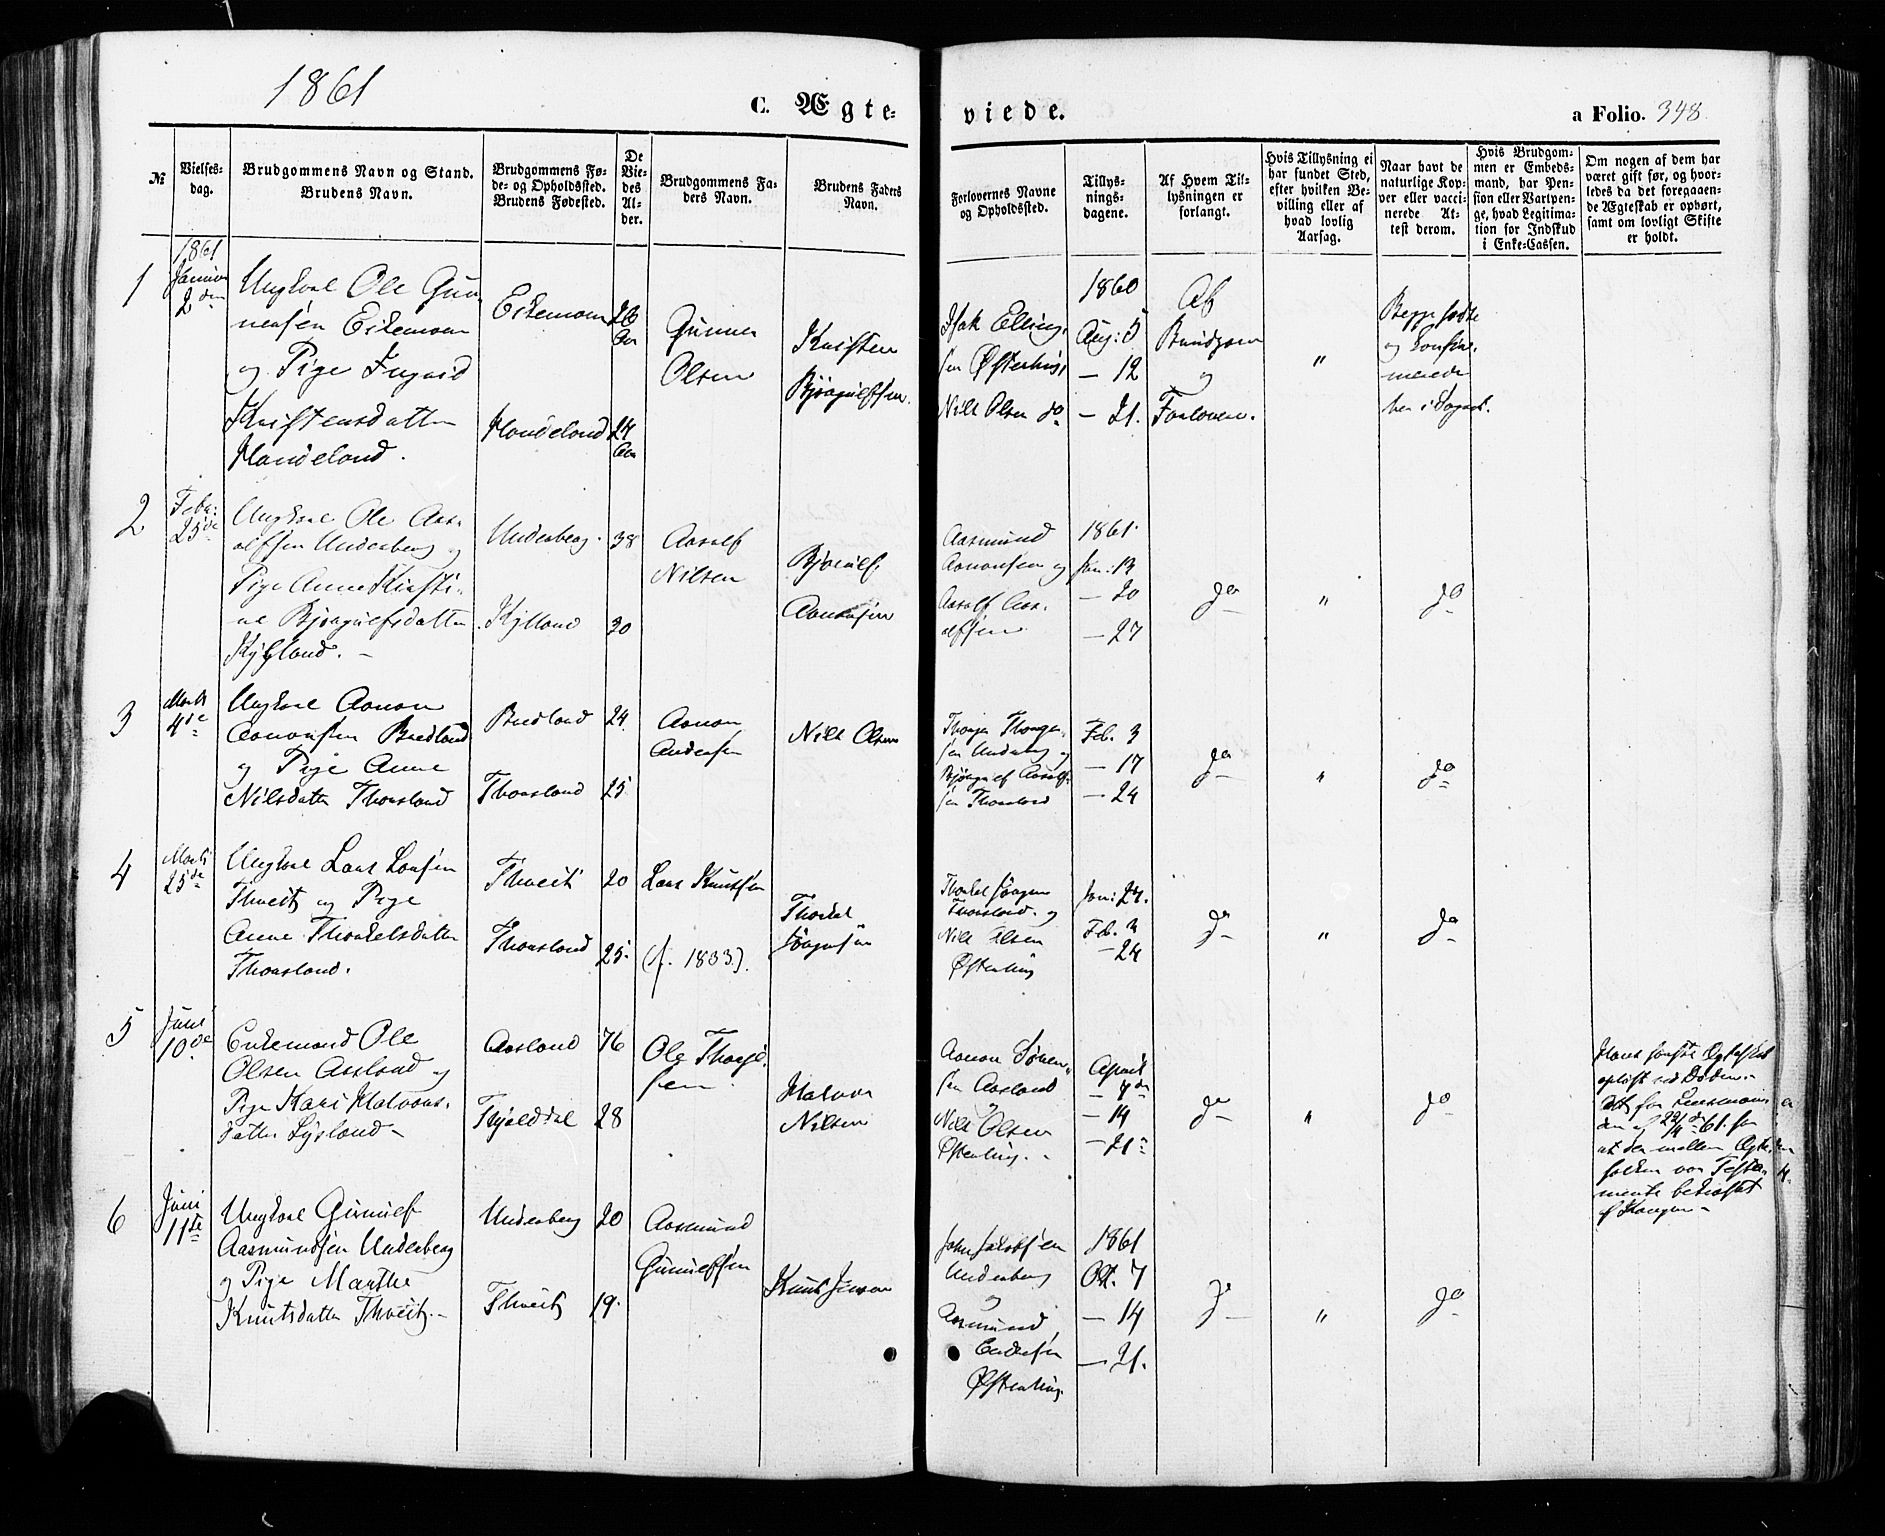 1861
C. Ægte-
viede.
a Folio. 348
№
Vielses-
dag.
Brudgommens Navn og Stand.
Brudens Navn.
Brudgommens Fø-
de- og Opholdssted.
Brudens Fødested.
De
Vie-
des
Al-
der.
Brudgommens Fa-
ders Navn.
Brudens Faders
Navn.
Forlovernes Navne
og Opholdssted.
Tillys-
nings-
dagene.
Af Hvem Til-
lysningen er
forlangt.
Hvis Tillysning ei
har fundet Sted,
efter hvilken Be-
villing eller af
hvad lovlig
Aarsag.
Naar havt de
naturlige Kop-
per eller vacci-
nerede At-
test derom.
Hvis Brudgom-
men er Embeds-
mand, har Pen-
sion eller Vartpen-
ge, hvad Legitima-
tion for Indskud
i Enke-Cassen.
Om nogen af dem har
været gift før, og hvor-
ledes da det foregaaen-
de Ægteskab er ophørt,
samt om lovligt Skifte
er holdt.
1861
1
Januar
2den
Ungkarl Ole Gun-
nersen Eikemoen
og Pige Ingrid
Kristensdatter
Handeland.
Eikemoen
Handeland
26
Aar
24
Aar
Gunner
Olsen
Kristen
Bjørgulfsen.
Isak Elling-
sen Østerhus,
Nils Olsen do
1860
Aug: 5
— 12
— 21.
Af
Brudgom
og
Forlover.
"
Begge
og
2
Febr:
25de
Ungkarl Ole Aas-
ulfsen Underberg og
Pige Anne Kirsti-
ne Bjørgulfsdatter
Kylland.
Underberg.
Kylland
38
30
Aasulf
Nilsen
Bjørulf
Aanonsen
Aasmund
Aanonsen og
Aasulf Aas-
ulfsen
1861.
Jan: 13
— 20
— 27
do
"
do
3
Marts
4de
Ungkarl Aanon
Aanonsen Bredland
og Pige Anne
Nilsdatter Thorsland
Bredland
Thorsland
24
25
Aanon
Andersen
Nils Olsen
Thorger Thorger-
sen Underberg og
Bjørgulf Aasulf-
sen Thorsland
Feb. 3
— 17
— 24
do
"
do
4
Marts
25de
Ungkarl Lars Larsen
Thveit og Pige
Anne Thorkelsdatter
Thorsland.
Thveit
Thorsland
20
25
Lars Knutsen
(f. 1833).
Thorkel
Jørgensen
Thorkel Jørgens
Thorsland og
Nils Olsen
Østerhus
Jan: 27.
Feb. 3
— 24
do
"
do
5
Juni
10de
Enkemand Ole
Olsen Aasland og
Pige Kari Halvors-
datter Lysland
Aasland
76
28
Ole
Halvor
Nilsen
Aanon Søren-
sen Aasland
og
Nils Olsen
Østerhus.
April
— 7de
— 14
— 21
do
"
do
Hans første Ægteskab
opløst ved Døden.
den af 22/4 61. for
at der mellem Ægte-
folken var Testa-
mente
af Kongen
6
Juni
11te
Ungkarl Gunulf
Aasmundsen Underberg
og Pige Marthe
Knutsdatter Thveit
Underberg
Thveit
20
19.
Aasmund
Gunulfsen
Knut Jensen
John Jakobsen
Underberg
og
Aasmund
Østerhus
1861
Okt. 7
— 14
— 21.
do
"
do